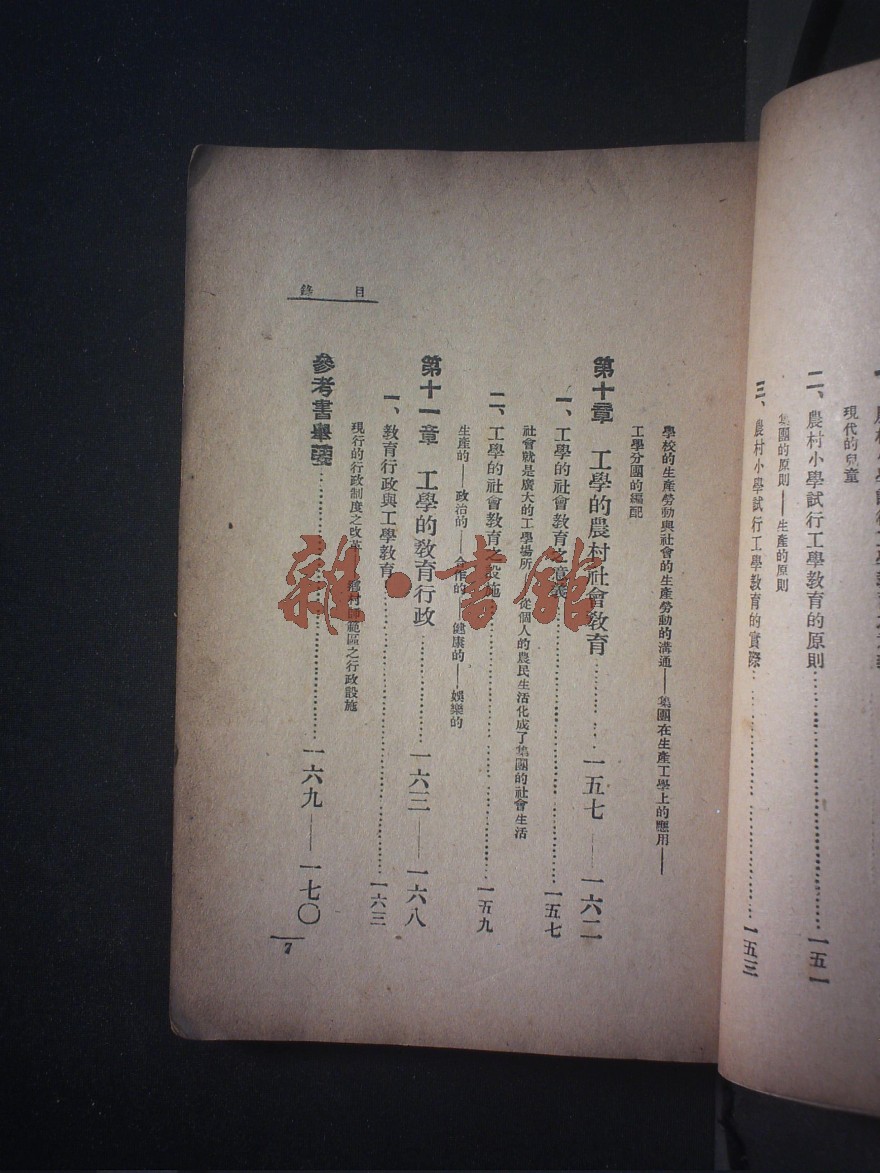 二、農村小學試行工學教育的原則……一五一
現代的兒童
集團的原則——生產的原則
三、農村小學試行工學教育的實際……一五三
目錄
學校的生產勞動與社會的生產勞動的溝通——集團在生產工學上的應用——
工學分團的編配
第十章 工學的農村社會教育……一五七——一六二
一、工學的社會教育之意義……一五七
社會就是廣大的工學場所——從個人的農民生活化成了集團的社會生活
二、工學的社會教育之設施……一五九
生產的——政治的——合作的——健康的——娛樂的
第十一章 工學的教育行政……一六三——一六八
一、教育行政與工學教育……一六三
現行的行政制度之改革——鄉村師範區之行政設施
參考書舉要……一六九——一七〇
7
雜·書館